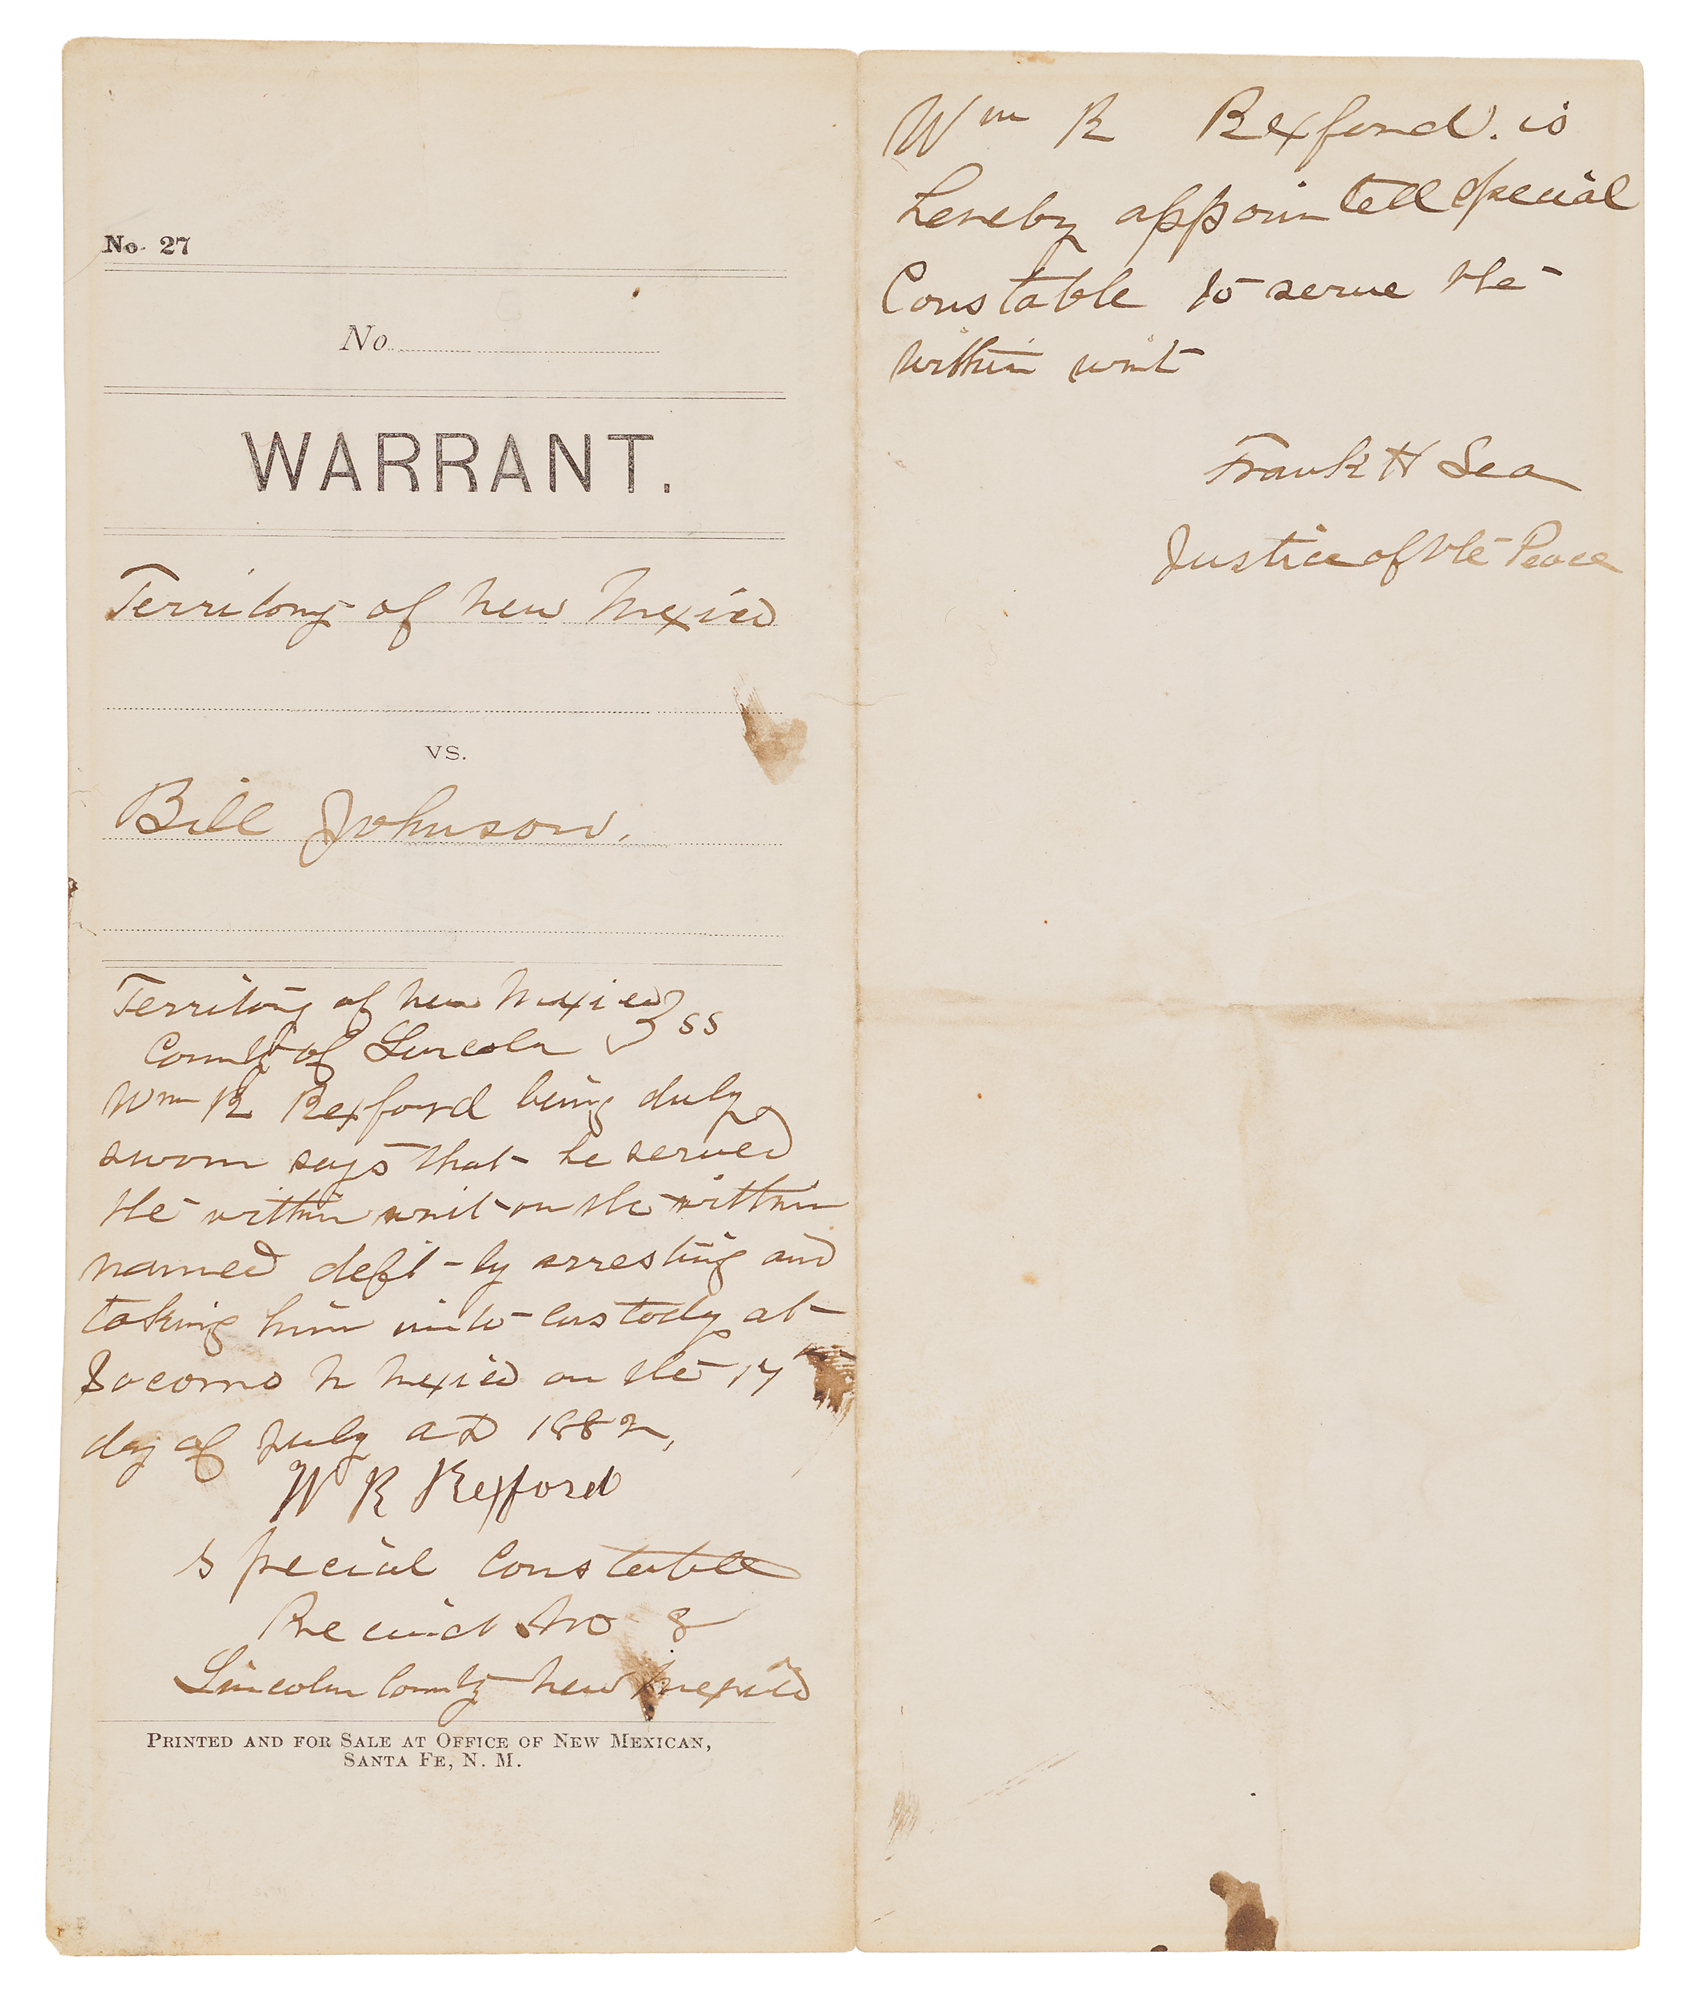 No. 27
No.
WARRANT.
Territory of New Mexico
VS.
Bill Johnson.
Territory of New Mexico } ss
County of Lincoln
Wm R Rexford being duly
sworn says that he served
the within writ on the within
named deft - by arresting and
taking him into custody at
Socorro N Mexico on the 17th
day of July AD 1882,
W R Rexford
Special Constable
Precinct No 8
Lincoln County New Mexico
PRINTED AND FOR SALE AT OFFICE OF NEW MEXICAN,
SANTA FE, N. M.
Wm R Rexford. is
hereby appointed special
Constable to serve the
within writ
Frank H Lea
Justice of the Peace